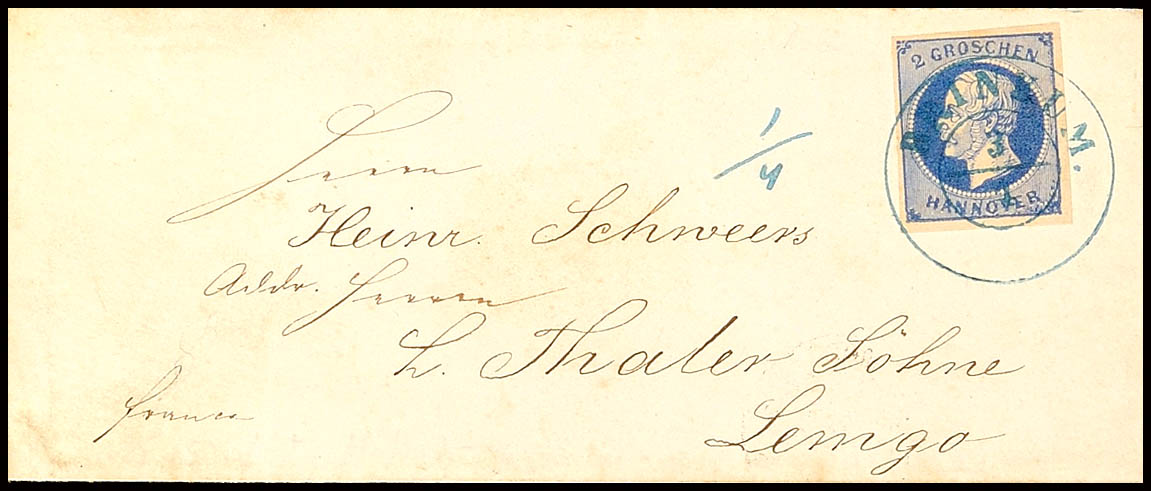 2 GROSCHEN
HANNOVER
3
1
1/4
Herrn
Heinr. Schweers
Addr. Herren
L. Thaler Söhne
Lemgo
franco